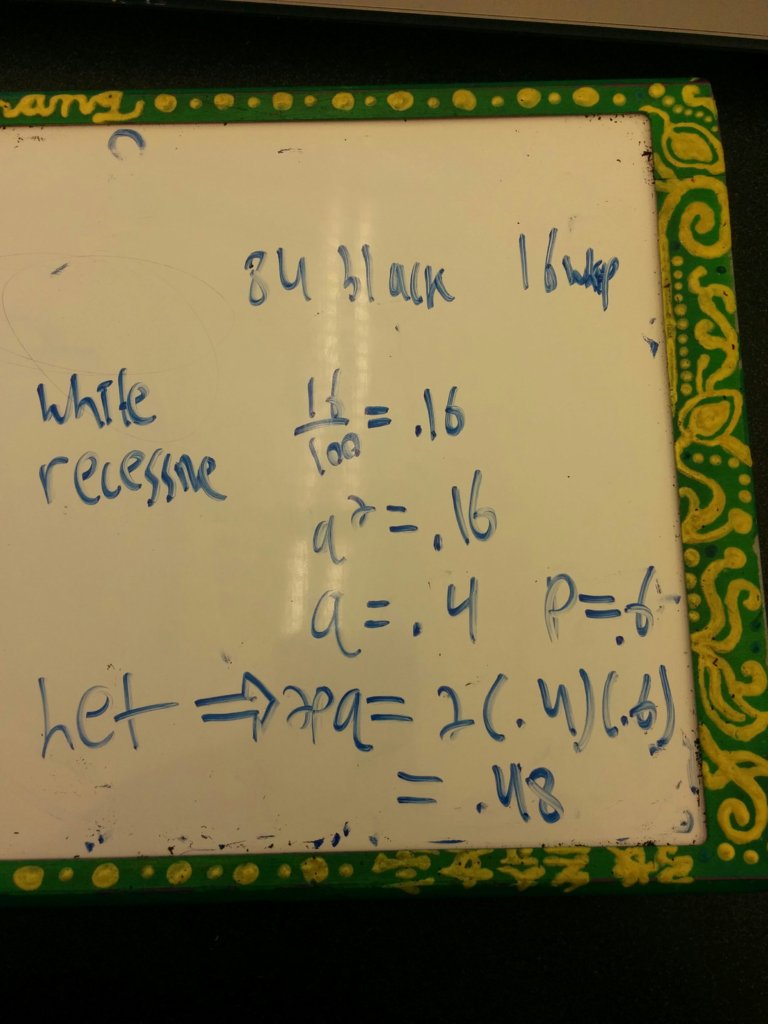 ang
84 black 16
white
recessive
16/100 = .16
q² = .16
q = .4 P = .6
het ⇒ 2pq = 2(.4)(.6)
= .48